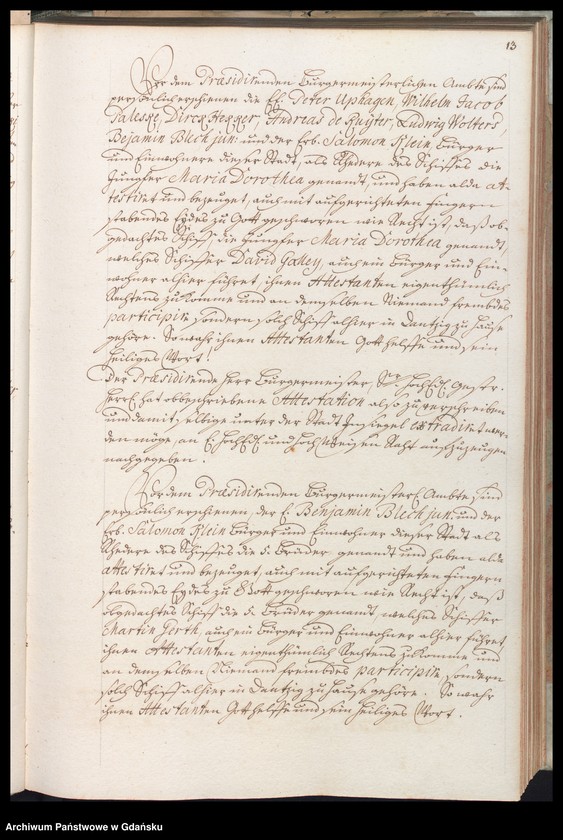 13
Vor dem Præsidirenden Bürgermeisterlichen Ambte sind
persöhnlich erschienen die Peter Uphagen, Wilhelm Jacob
Palesze, Dirck Hegger, Andreas de Ruyter, Ludwig Wolters,
Bejamin Blech jun: und der Erb. Salomon Klein, Bürger
und Einwohnere dieser Stadt, als Rhedere des Schiffes die
Jungfer Maria Dorothea genandt, und haben alda at-
testiret und bezeuget, auch mit aufgerichteten Fingern
stabendes Eydes zu Gott geschworen wie Recht ist, daß ob-
gedachtes Schiff, die Jungfer Maria Dorothea genandt,
welches Schiffer David Gakey, auch ein Bürger und Ein-
wohner alhier führet, ihnen Attestanten eigenthümlich
Rechtens zukomme und an demselben Niemand frembdes
participire sondern solch Schiff alhier in Dantzig zu Hause
gehöre. So wahr ihnen Attestanten Gott helffe und sein
heiliges Wort.
Der Præsidirende Herr Bürgermeister, Sr.
Herrl. hat obbeschriebene Attestation also zu verschreiben
und damit selbige unter der Stadt Insiegel extradiret wer-
den möge, an E. und Hochweisen Raht aufzuzeugen
nachgegeben.
Vor dem Præsidirenden Bürgermeisterl. Ambte sind
persöhnlich erschienen, der E. Benjamin Blech jun: und der
Erb. Salomon Klein Bürger und Einwohner dieser Stadt als
Rhedere des Schiffes die 5. Brüder genandt und haben alda
attestiret und bezeuget, auch mit aufgerichteten Fingern
stabendes Eydes zu Gott geschworen wie Recht ist, daß
obgedachtes Schiff die 5. Brüder genandt, welches Schiffer
Martin Gerth, auch ein Bürger und Einwohner alhier führet,
ihnen Attestanten eigenthümlich Rechtens zukomme und
an demselben Niemand frembdes participire, sondern
solch Schiff alhier in Dantzig zu Hause gehöre. So wahr
ihnen Attestanten Gott helffe und sein heiliges Wort.
Archiwum Państwowe w Gdańsku